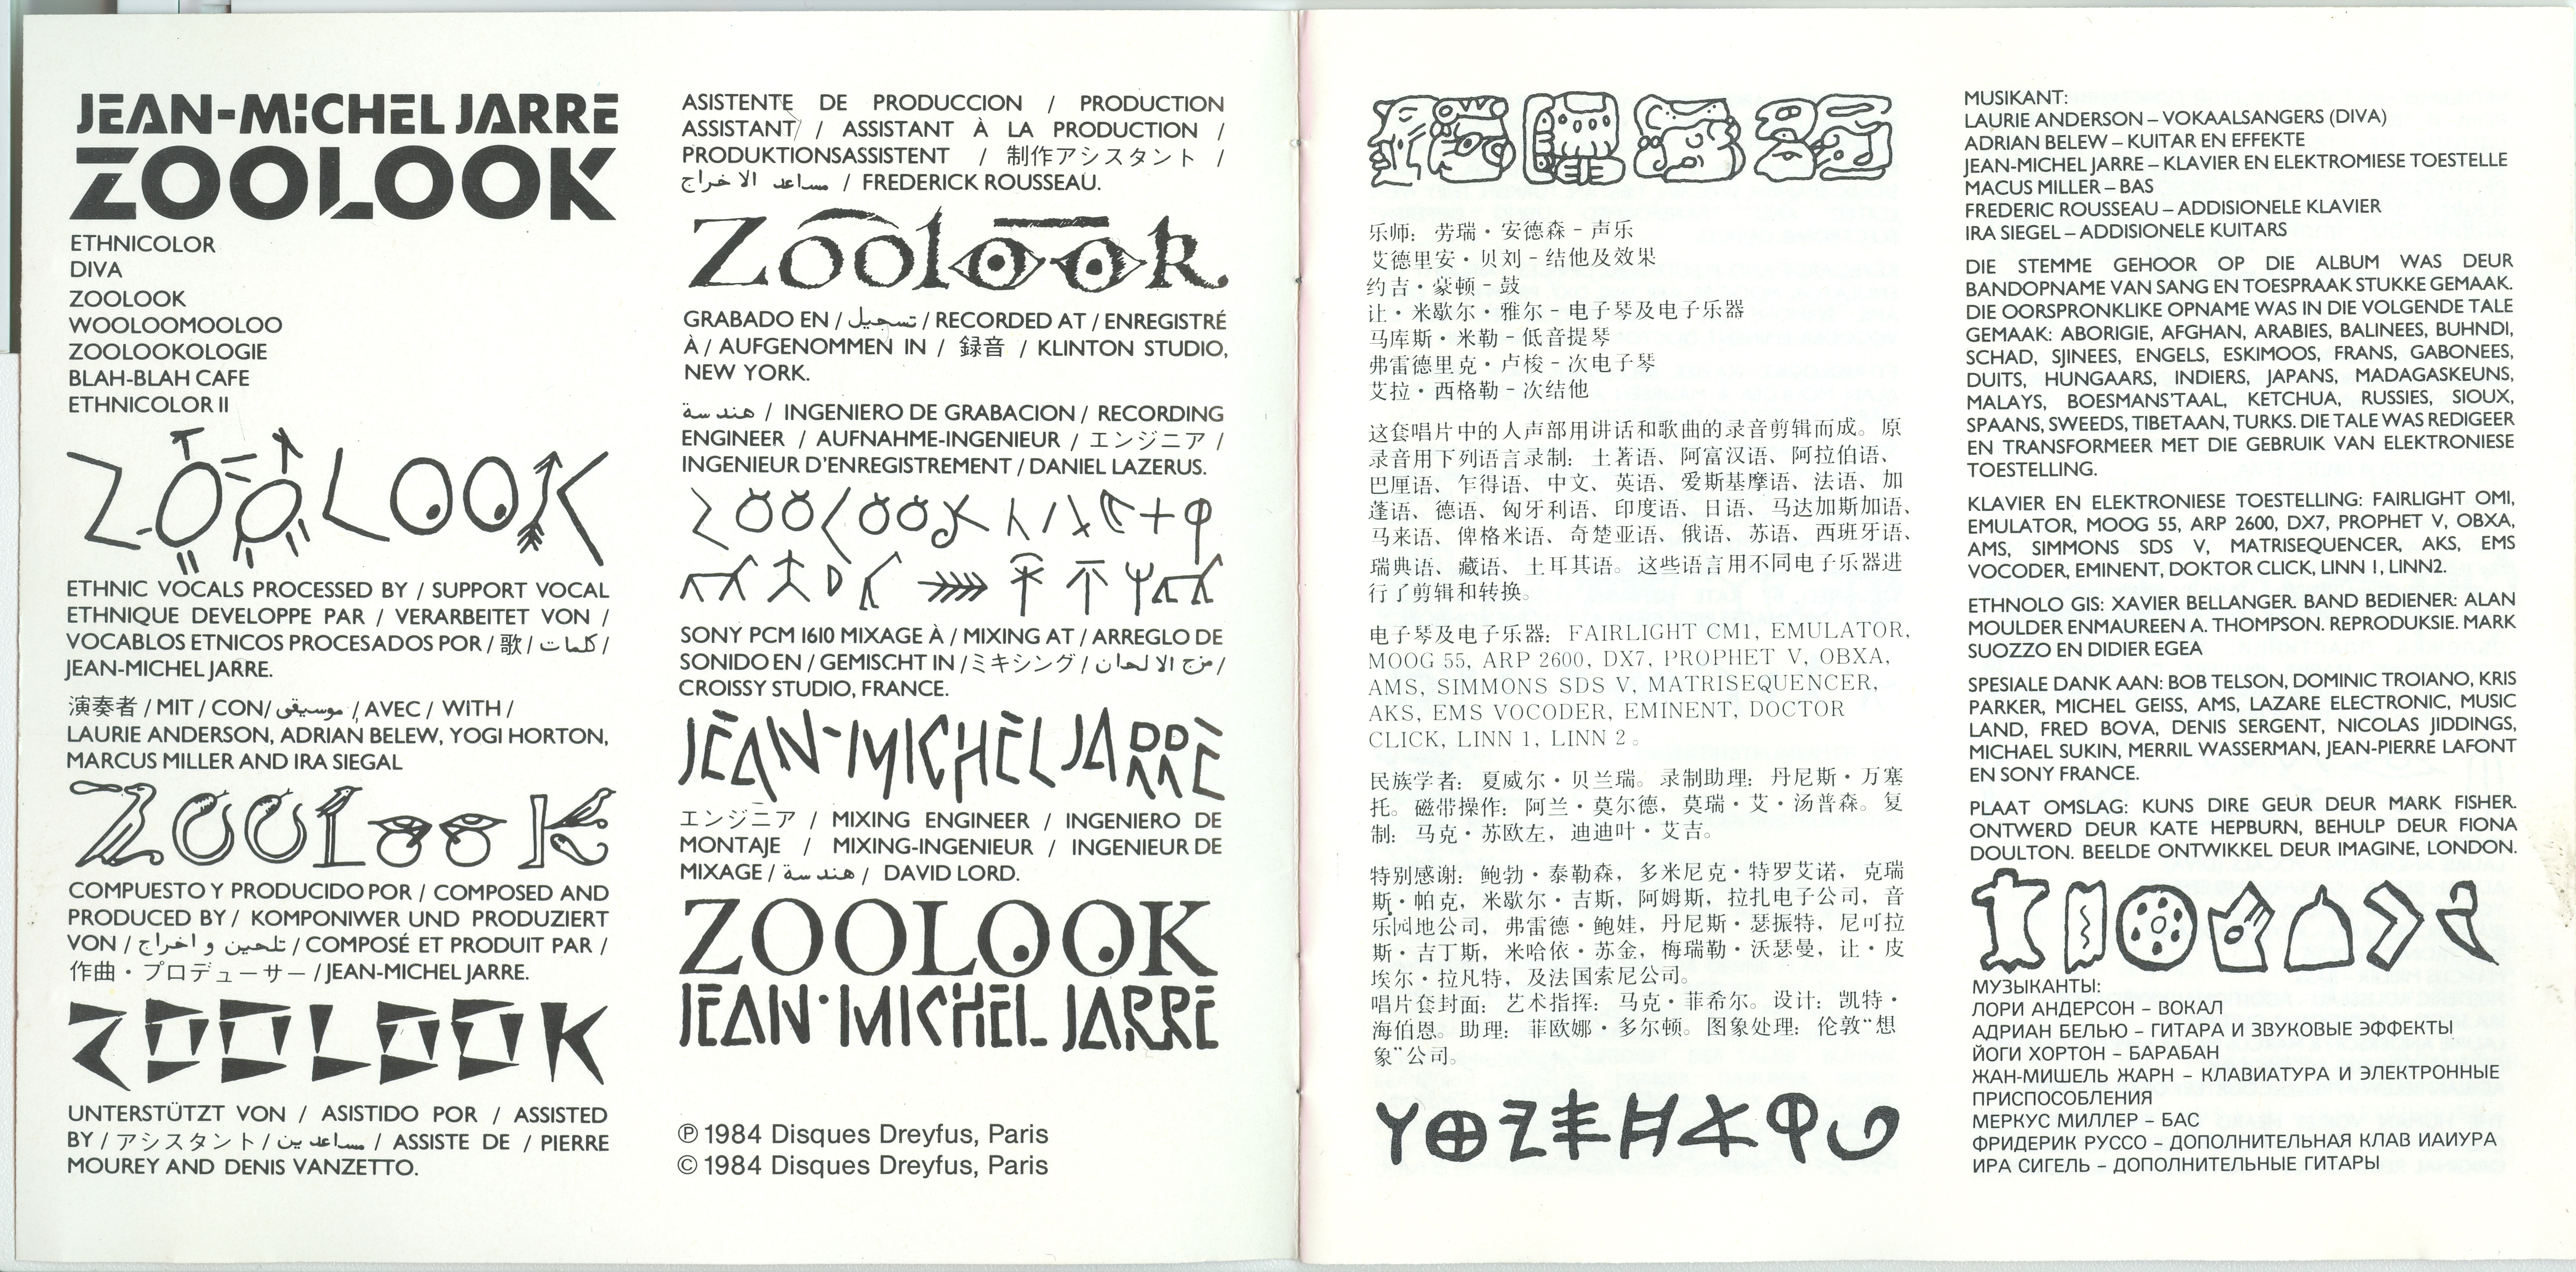 JEAN-MICHEL JARRE
ZOOLOOK
ETHNICOLOR
DIVA
ZOOLOOK
WOOLOOMOOLOO
ZOOLOOKOLOGIE
BLAH-BLAH CAFE
ETHNICOLOR II
ZOOLOOK
ETHNIC VOCALS PROCESSED BY / SUPPORT VOCAL
ETHNIQUE DEVELOPPE PAR / VERARBEITET VON /
VOCABLOS ETNICOS PROCESADOS POR / 歌 / كلمات /
JEAN-MICHEL JARRE.
演奏者 / MIT / CON / موسيقى / AVEC / WITH /
LAURIE ANDERSON, ADRIAN BELEW, YOGI HORTON,
MARCUS MILLER AND IRA SIEGAL
ZOOLOOK
COMPUESTO Y PRODUCIDO POR / COMPOSED AND
PRODUCED BY / KOMPONIWER UND PRODUZIERT
VON / تلحين و اخراج / COMPOSÉ ET PRODUIT PAR /
作曲・プロデューサー / JEAN-MICHEL JARRE.
ZOOLOOK
UNTERSTÜTZT VON / ASISTIDO POR / ASSISTED
BY / アシスタント / مساعدين / ASSISTE DE / PIERRE
MOUREY AND DENIS VANZETTO.
ASISTENTE DE PRODUCCION / PRODUCTION
ASSISTANT / ASSISTANT À LA PRODUCTION /
PRODUKTIONSASSISTENT / 制作アシスタント /
مساعد الاخراج / FREDERICK ROUSSEAU.
Zoolook
GRABADO EN / تسجيل / RECORDED AT / ENREGISTRÉ
À / AUFGENOMMEN IN / 録音 / KLINTON STUDIO,
NEW YORK.
هندسة / INGENIERO DE GRABACION / RECORDING
ENGINEER / AUFNAHME-INGENIEUR / エンジニア /
INGENIEUR D'ENREGISTREMENT / DANIEL LAZERUS.
ZOOLOOK
SONY PCM 1610 MIXAGE À / MIXING AT / ARREGLO DE
SONIDO EN / GEMISCHT IN / ミキシング / مزج الالحان /
CROISSY STUDIO, FRANCE.
JEAN-MICHEL JARRE
エンジニア / MIXING ENGINEER / INGENIERO DE
MONTAJE / MIXING-INGENIEUR / INGENIEUR DE
MIXAGE / هندسة / DAVID LORD.
ZOOLOOK
JEAN-MICHEL JARRE
℗ 1984 Disques Dreyfus, Paris
© 1984 Disques Dreyfus, Paris
乐师: 劳瑞・安德森 – 声乐
艾德里安・贝刘 – 结他及效果
约吉・豪顿 – 鼓
让・米歇尔・雅尔 – 电子琴及电子乐器
马库斯・米勒 – 低音提琴
弗雷德里克・卢梭 – 次电子琴
艾拉・西格勒 – 次结他
这套唱片中的人声部用讲话和歌曲的录音剪辑而成。原
录音用下列语言录制: 土著语、阿富汉语、阿拉伯语、
巴厘语、乍得语、中文、英语、爱斯基摩语、法语、加
蓬语、德语、匈牙利语、印度语、日语、马达加斯加语、
马来语、俾格米语、奇楚亚语、俄语、苏语、西班牙语、
瑞典语、藏语、土耳其语。这些语言用不同电子乐器进
行了剪辑和转换。
电子琴及电子乐器: FAIRLIGHT CM1, EMULATOR,
MOOG 55, ARP 2600, DX7, PROPHET V, OBXA,
AMS, SIMMONS SDS V, MATRISEQUENCER,
AKS, EMS VOCODER, EMINENT, DOCTOR
CLICK, LINN 1, LINN 2。
民族学者: 夏威尔・贝兰瑞。录制助理: 丹尼斯・万塞
托。磁带操作: 阿兰・莫尔德, 莫瑞・艾・汤普森。复
制: 马克・苏欧左, 迪迪叶・艾吉。
特别感谢: 鲍勃・泰勒森, 多米尼克・特罗艾诺, 克瑞
斯・帕克, 米歇尔・吉斯, 阿姆斯, 拉扎电子公司, 音
乐园地公司, 弗雷德・鲍娃, 丹尼斯・瑟振特, 尼可拉
斯・吉丁斯, 米哈依・苏金, 梅瑞勒・沃瑟曼, 让・皮
埃尔・拉凡特, 及法国索尼公司。
唱片套封面: 艺术指挥: 马克・菲希尔。设计: 凯特・
海伯恩。助理: 菲欧娜・多尔顿。图象处理: 伦敦“想
象”公司。
MUSIKANT:
LAURIE ANDERSON – VOKAALSANGERS (DIVA)
ADRIAN BELEW – KUITAR EN EFFEKTE
JEAN-MICHEL JARRE – KLAVIER EN ELEKTROMIESE TOESTELLE
MACUS MILLER – BAS
FREDERIC ROUSSEAU – ADDISIONELE KLAVIER
IRA SIEGEL – ADDISIONELE KUITARS
DIE STEMME GEHOOR OP DIE ALBUM WAS DEUR
BANDOPNAME VAN SANG EN TOESPRAAK STUKKE GEMAAK.
DIE OORSPRONKLIKE OPNAME WAS IN DIE VOLGENDE TALE
GEMAAK: ABORIGIE, AFGHAN, ARABIES, BALINEES, BUHNDI,
SCHAD, SJINEES, ENGELS, ESKIMOOS, FRANS, GABONEES,
DUITS, HUNGAARS, INDIERS, JAPANS, MADAGASKEUNS,
MALAYS, BOESMANS'TAAL, KETCHUA, RUSSIES, SIOUX,
SPAANS, SWEEDS, TIBETAAN, TURKS. DIE TALE WAS REDIGEER
EN TRANSFORMEER MET DIE GEBRUIK VAN ELEKTRONIESE
TOESTELLING.
KLAVIER EN ELEKTRONIESE TOESTELLING: FAIRLIGHT OMI,
EMULATOR, MOOG 55, ARP 2600, DX7, PROPHET V, OBXA,
AMS, SIMMONS SDS V, MATRISEQUENCER, AKS, EMS
VOCODER, EMINENT, DOKTOR CLICK, LINN 1, LINN2.
ETHNOLO GIS: XAVIER BELLANGER. BAND BEDIENER: ALAN
MOULDER ENMAUREEN A. THOMPSON. REPRODUKSIE. MARK
SUOZZO EN DIDIER EGEA
SPESIALE DANK AAN: BOB TELSON, DOMINIC TROIANO, KRIS
PARKER, MICHEL GEISS, AMS, LAZARE ELECTRONIC, MUSIC
LAND, FRED BOVA, DENIS SERGENT, NICOLAS JIDDINGS,
MICHAEL SUKIN, MERRIL WASSERMAN, JEAN-PIERRE LAFONT
EN SONY FRANCE.
PLAAT OMSLAG: KUNS DIRE GEUR DEUR MARK FISHER.
ONTWERD DEUR KATE HEPBURN, BEHULP DEUR FIONA
DOULTON. BEELDE ONTWIKKEL DEUR IMAGINE, LONDON.
МУЗЫКАНТЫ:
ЛОРИ АНДЕРСОН – ВОКАЛ
АДРИАН БЕЛЬЮ – ГИТАРА И ЗВУКОВЫЕ ЭФФЕКТЫ
ЙОГИ ХОРТОН – БАРАБАН
ЖАН-МИШЕЛЬ ЖАРН – КЛАВИАТУРА И ЭЛЕКТРОННЫЕ
ПРИСПОСОБЛЕНИЯ
МЕРКУС МИЛЛЕР – БАС
ФРИДЕРИК РУССО – ДОПОЛНИТЕЛЬНАЯ КЛАВ ИАИУРА
ИРА СИГЕЛЬ – ДОПОЛНИТЕЛЬНЫЕ ГИТАРЫ